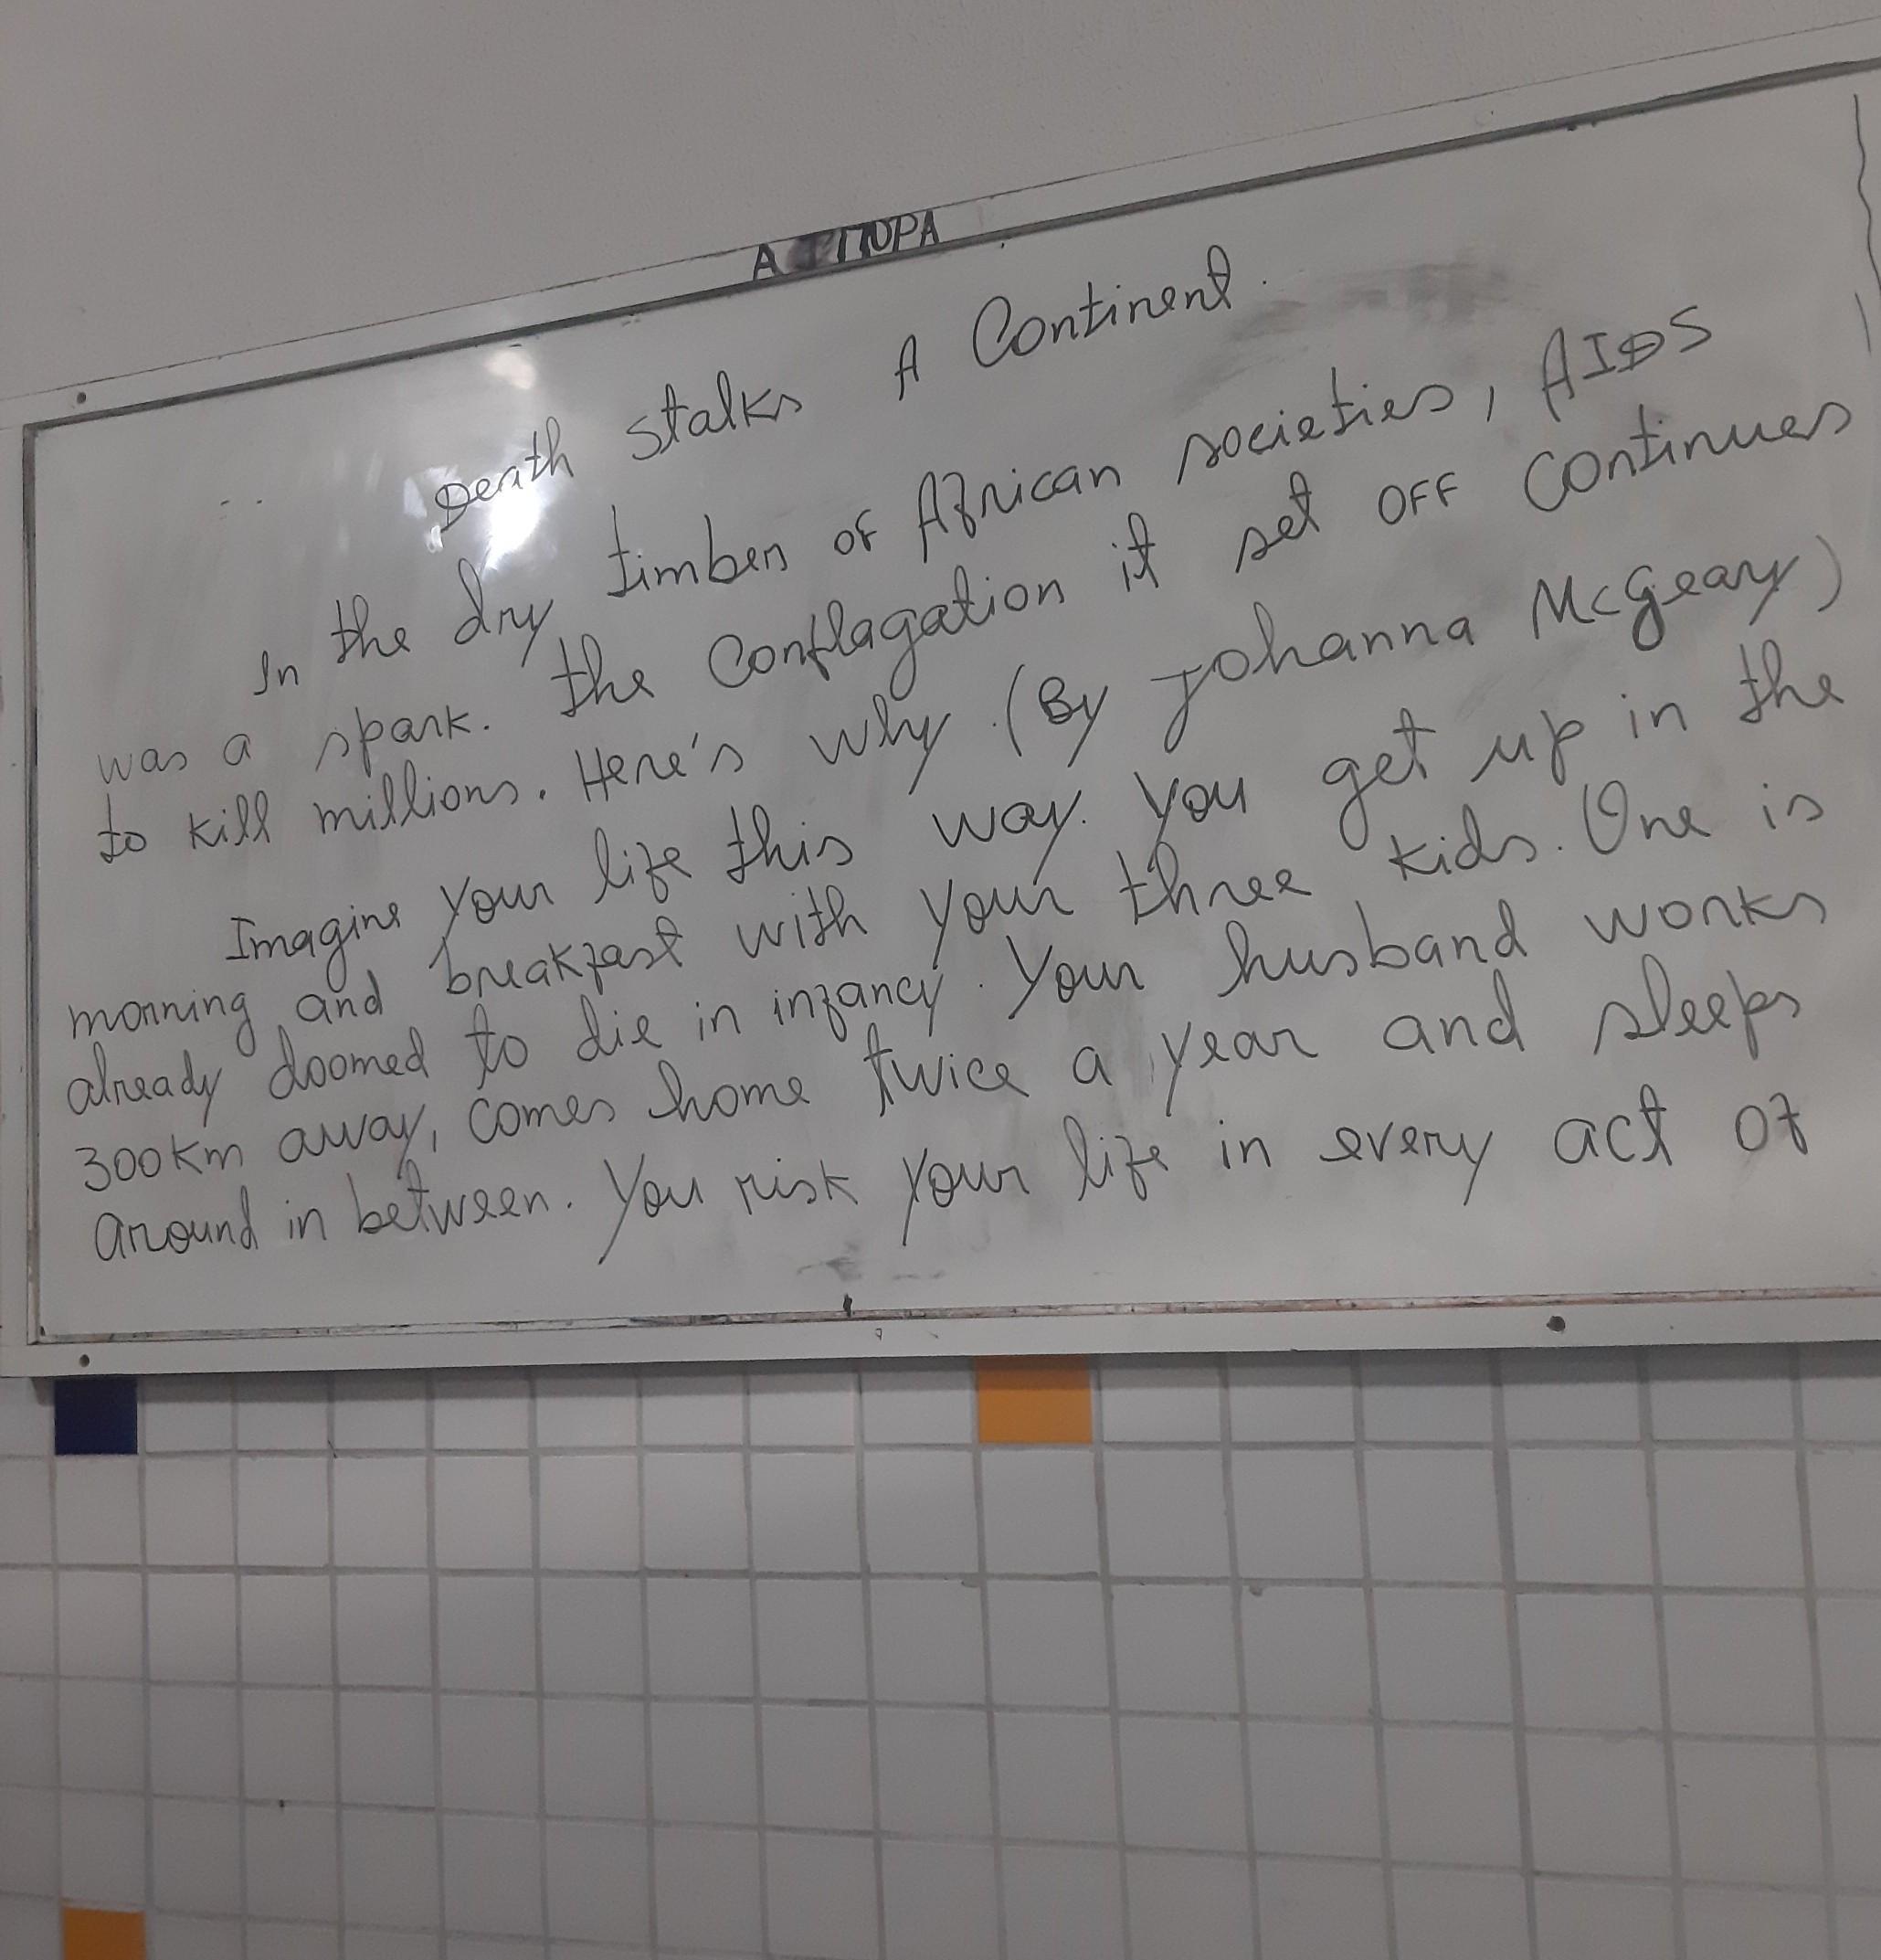 Death Stalks A Continent.
In the dry timber of African societies, AIDS
was a spark. The Conflagation it set OFF Continues
to kill millions. Here's why. (By Johanna McGeary)
Imagine your life this way. You get up in the
morning and breakfast with your three kids. One is
already doomed to die in infancy. Your husband works
300km away, comes home twice a year and sleeps
around in between. You risk your life in every act of